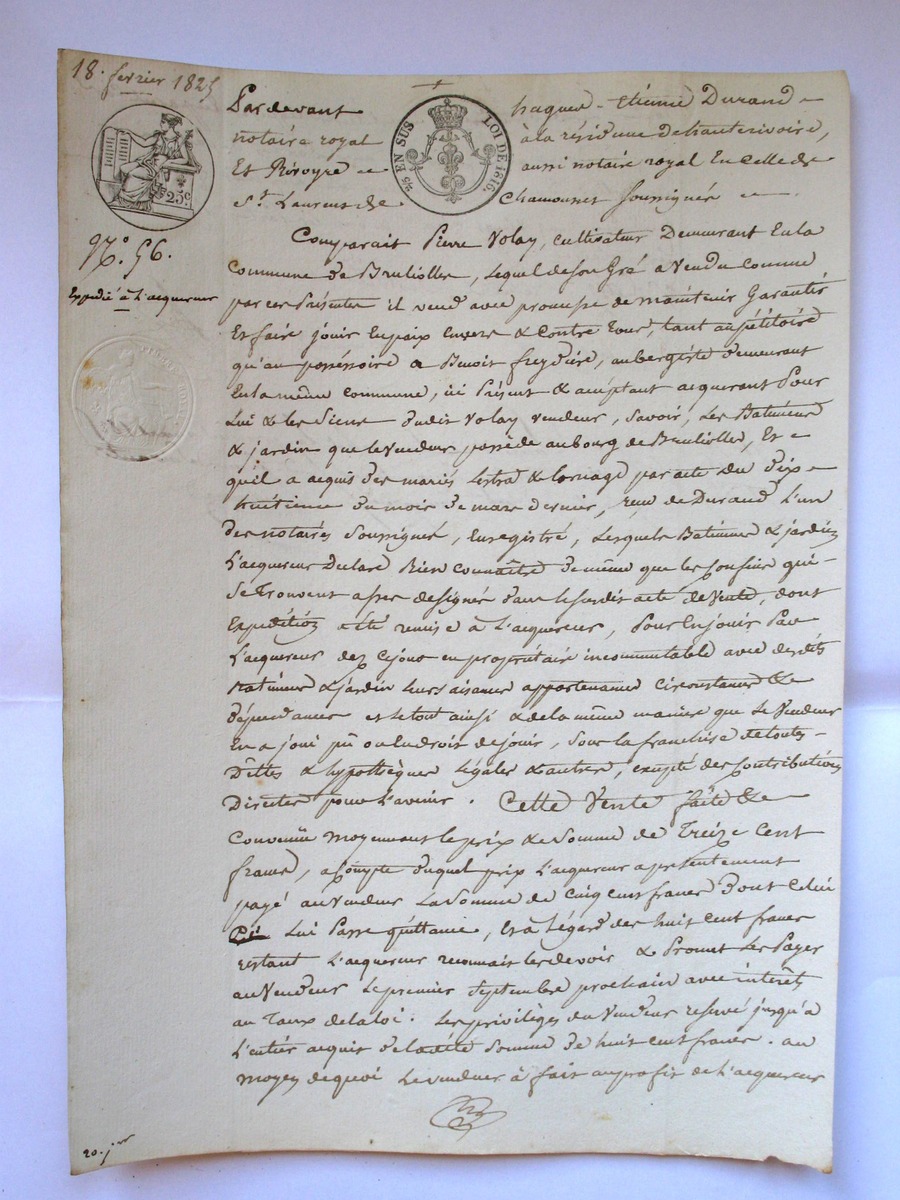 18. février 1825
Pardevant Jacques-Etienne Durand
notaire royal à la résidence de hauterivoire,
Et Rivoyre aussi notaire royal En celle de
St. Laurent de Chamousset soussignés
EN SUS LOI DE 1816
25c
N.° 56.
Expedié à L'acquereur
Comparait Pierre Volay, cultivateur Demeurant En la
Commune de Brulliolles, lequel de son Gré a Vendu comme
par ces Présentes il vend avec promesse de maintenir Garantir
Et faire jouir En paix Envers & Contre tous, tant au pétitoire
qu'au possessoire a Benoit freydière, aubergiste demeurant
En la même commune, ici Présent & acceptant acquerant Pour
Lui & les Siens dudit Volay vendeur, Savoir, Les Batimens
& jardin que le Vendeur possède au bourg de Brulliolles, Et
qu'il a acquis des mariés Lestra & Cornage par acte du dix
huitième du mois de mars dernier, reçu de Durand L'un
des notaires soussignés, Enregistré, Lesquels Batimens & jardin
L'acquereur Declare Bien connaître de même que les confins qui
se trouvent assez designés dans le susdit acte de Vente, dont
Expédition a été remise à L'acquereur, Pour En jouir Par
L'acquereur dez ce jour en propriétaire incommutable avec desdits
Batimens & jardin leurs aisances appartenances circonstances &
dépendances et le tout ainsi & de la même maniere que Le Vendeur
En a joui pû ou eu droit de jouir, sous la franchise de toutes
Dettes & hypothèques Légales & autres, excepté des Contributions
Directes pour L'avenir. Cette Vente faite &
Convenüe moyennant le prix & Somme de Treize Cent
francs, a Compte duquel prix L'acquereur a présentement
payé au Vendeur La Somme de Cinq cent francs dont Celui
Ci Lui Passe quittance, Et à L'égard des huit Cent francs
restant L'acquereur reconnait les devoir & Promet Les Payer
au Vendeur Le premier Septembre prochain avec intérêts
au Taux de la loi. Les privilèges du Vendeur reservé jusqu'à
L'entier acquit de la dite Somme de huit cent francs. au
moyen de quoi Le vendeur à fait au profit de L'acquereur
20. j.er